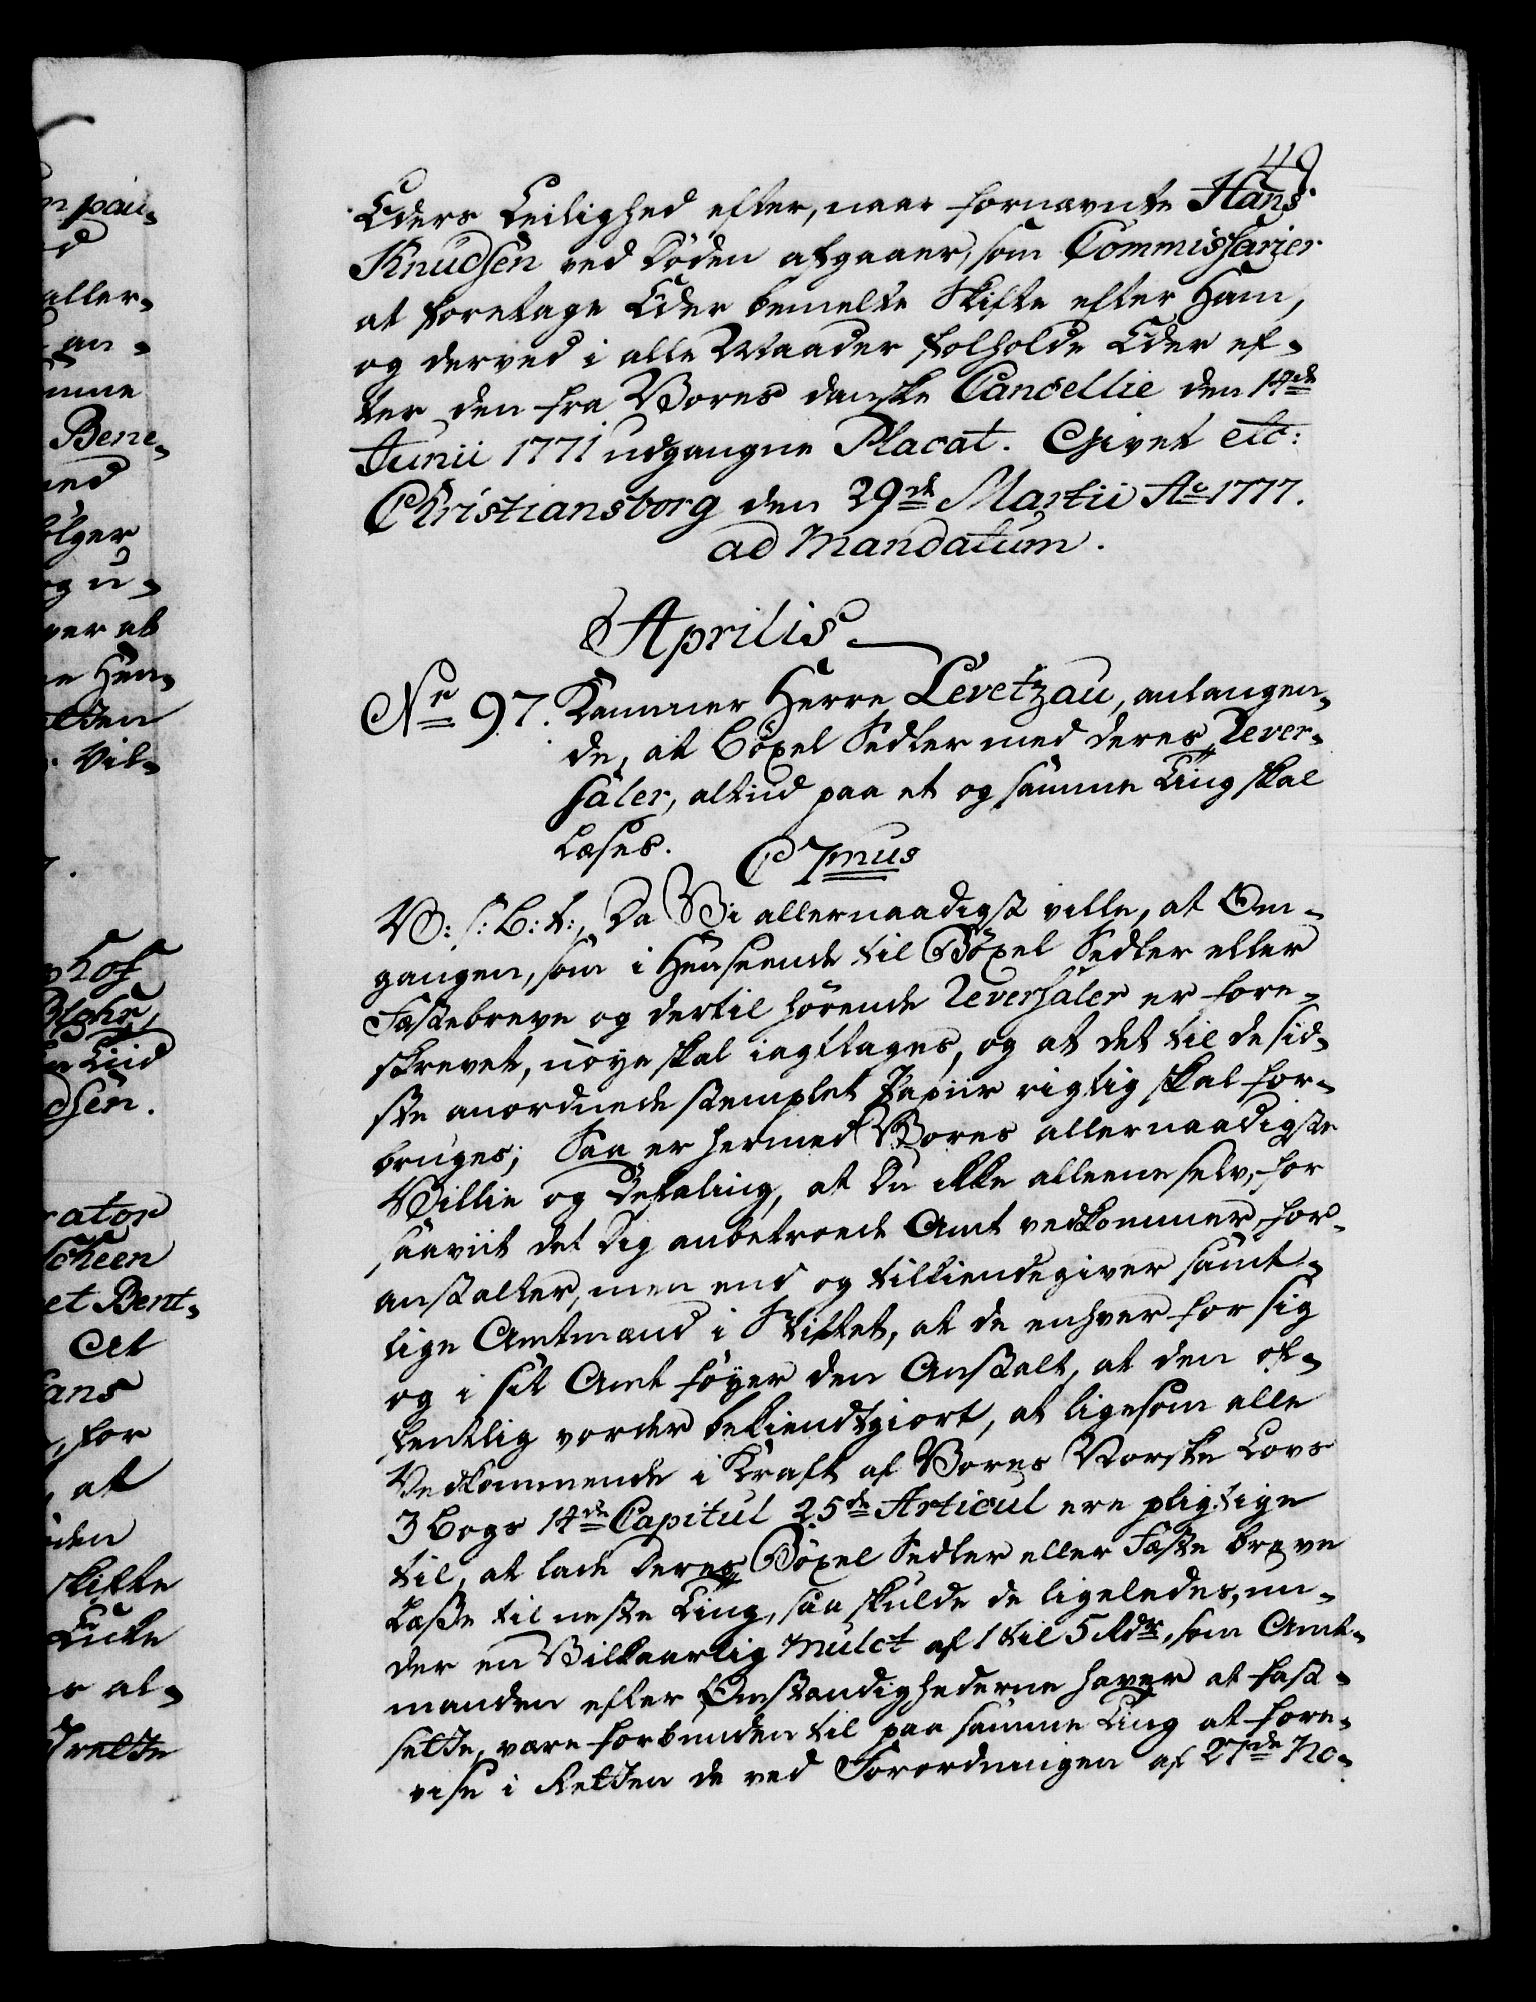 49.
Eders Leilighed efter, naar fornævnte Hans
Knudsen ved Døden afgaaer, som Commissarier
at foretage Eder bemelte Skifte efter Ham,
og derved i alle Maader forholde Eder ef-
ter den fra Vores danske Cancellie den 14de
Junii 1771 udgangne Placat. Givet etc:
Christiansborg den 29de Martii Ao 1777.
ad Mandatum.
Aprilis
No 97. Kammer Herre Levetzau, anlangen-
de, at Böxel Sedler med deres Rever-
saler, altiid paa et og samme Ting skal
læses.
C 7mus
V: S: B: t:, Da Vi allernaadigst ville, at Om-
gangen, som i Henseende til Böxel Sedler eller
Fæstebreve og dertil hørende Reversaler er fore-
skrevet, nøye skal iagttages, og at det til de sid-
ste anordnede stemplet Papiir rigtig skal for-
bruges; Saa er hermed Vores allernaadigste
Villie og Befaling, at Du ikke alleene selv, for
saaviit det Dig anbetroede Amt vedkommer, for-
anstalter, men end og tilkiendegiver samt-
lige Amtmænd i Stiftet, at de enhver for sig
og i sit Amt føyer den Anstalt, at den of-
fentlig vorder bekiendtgiort, at ligesom alle
Vedkommende i Kraft af Vores Norske Lovs
3 Bogs 14de Capitul 25de Articul ere pligtige
til, at lade deres Böxel Sedler eller Fæste breve
læse til neste Ting, saa skulde de ligeledes, un-
der en Vilkaarlig Mulct af 1 til 5 Rdr, som Amt-
manden efter Omstændighederne haver at fast-
sette, være forbunden til paa samme Ting at fore-
vise i Retten de ved Forordningen af 27de No-